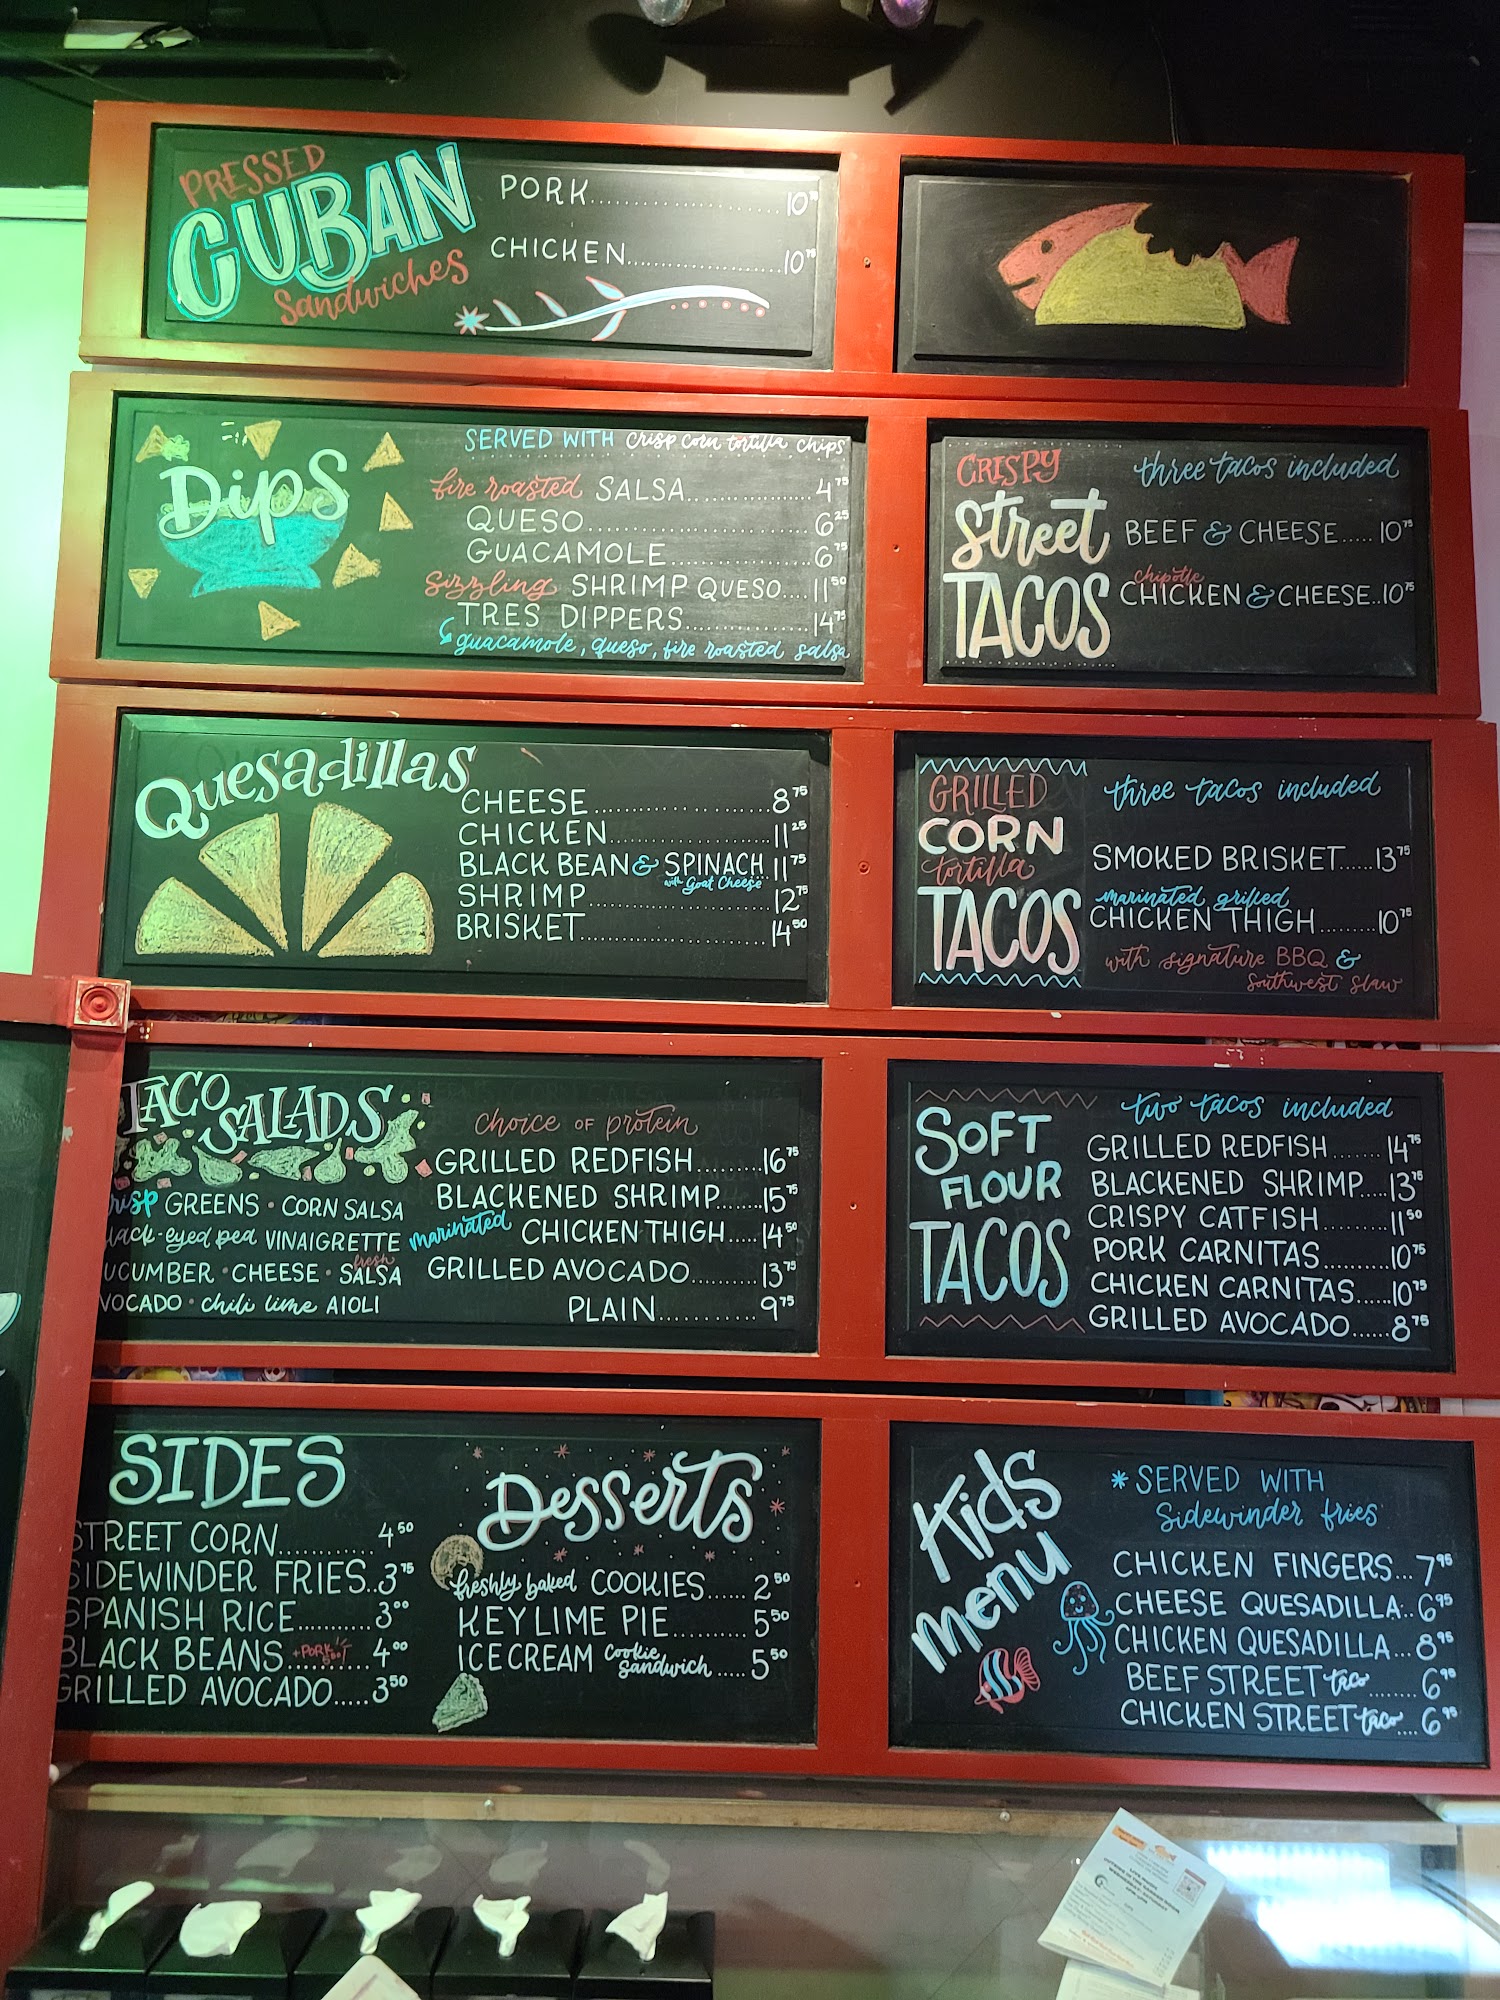 PRESSED
CUBAN
Sandwiches
PORK 10⁷⁵
CHICKEN 10⁷⁵
Dips
SERVED WITH crisp corn tortilla chips
fire roasted SALSA 4⁷⁵
QUESO 6²⁵
GUACAMOLE 6⁷⁵
Sizzling SHRIMP QUESO 11⁵⁰
TRES DIPPERS 14⁷⁵
guacamole, queso, fire roasted salsa
CRISPY
Street
TACOS
three tacos included
BEEF & CHEESE 10⁷⁵
chipotle
CHICKEN & CHEESE 10⁷⁵
Quesadillas
CHEESE 8⁷⁵
CHICKEN 11²⁵
BLACK BEAN & SPINACH 11⁷⁵
with Goat Cheese
SHRIMP 12⁷⁵
BRISKET 14⁵⁰
GRILLED
CORN
tortilla
TACOS
three tacos included
SMOKED BRISKET 13⁷⁵
marinated grilled
CHICKEN THIGH 10⁷⁵
with signature BBQ &
Southwest Slaw
TACO
SALADS
GREENS • CORN SALSA
-eyed pea VINAIGRETTE
UCUMBER • CHEESE • fresh SALSA
VOCADO • chili lime AIOLI
choice OF protein
GRILLED REDFISH 16⁷⁵
BLACKENED SHRIMP 15⁷⁵
marinated CHICKEN THIGH 14⁵⁰
GRILLED AVOCADO 13⁷⁵
PLAIN 9⁷⁵
SOFT
FLOUR
TACOS
two tacos included
GRILLED REDFISH 14⁷⁵
BLACKENED SHRIMP 13⁷⁵
CRISPY CATFISH 11⁵⁰
PORK CARNITAS 10⁷⁵
CHICKEN CARNITAS 10⁷⁵
GRILLED AVOCADO 8⁷⁵
SIDES
STREET CORN 4⁵⁰
SIDEWINDER FRIES 3⁷⁵
SPANISH RICE 3⁰⁰
BLACK BEANS +PORK 4⁰⁰
GRILLED AVOCADO 3⁵⁰
Desserts
freshly baked COOKIES 2⁵⁰
KEY LIME PIE 5⁵⁰
ICE CREAM Cookie Sandwich 5⁵⁰
Kids
menu
* SERVED WITH
Sidewinder fries
CHICKEN FINGERS 7⁹⁵
CHEESE QUESADILLA 6⁹⁵
CHICKEN QUESADILLA 8⁹⁵
BEEF STREET taco 6⁹⁵
CHICKEN STREET taco 6⁹⁵